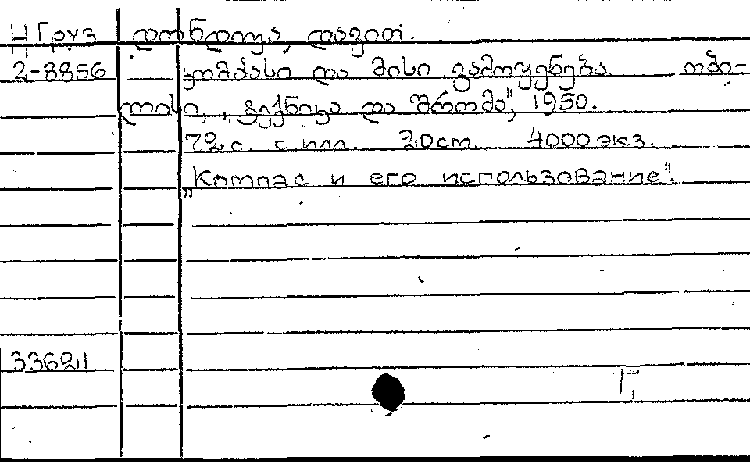 4 Груз დონდუა, დავით.
2-8856 კომპასი და მისი გამოყენება. თბი-
ლისი, „ტექნიკა და შრომა", 1950.
72 с. с илл. 20 см. 4000 экз.
„Компас и его использование".
33621
Г,